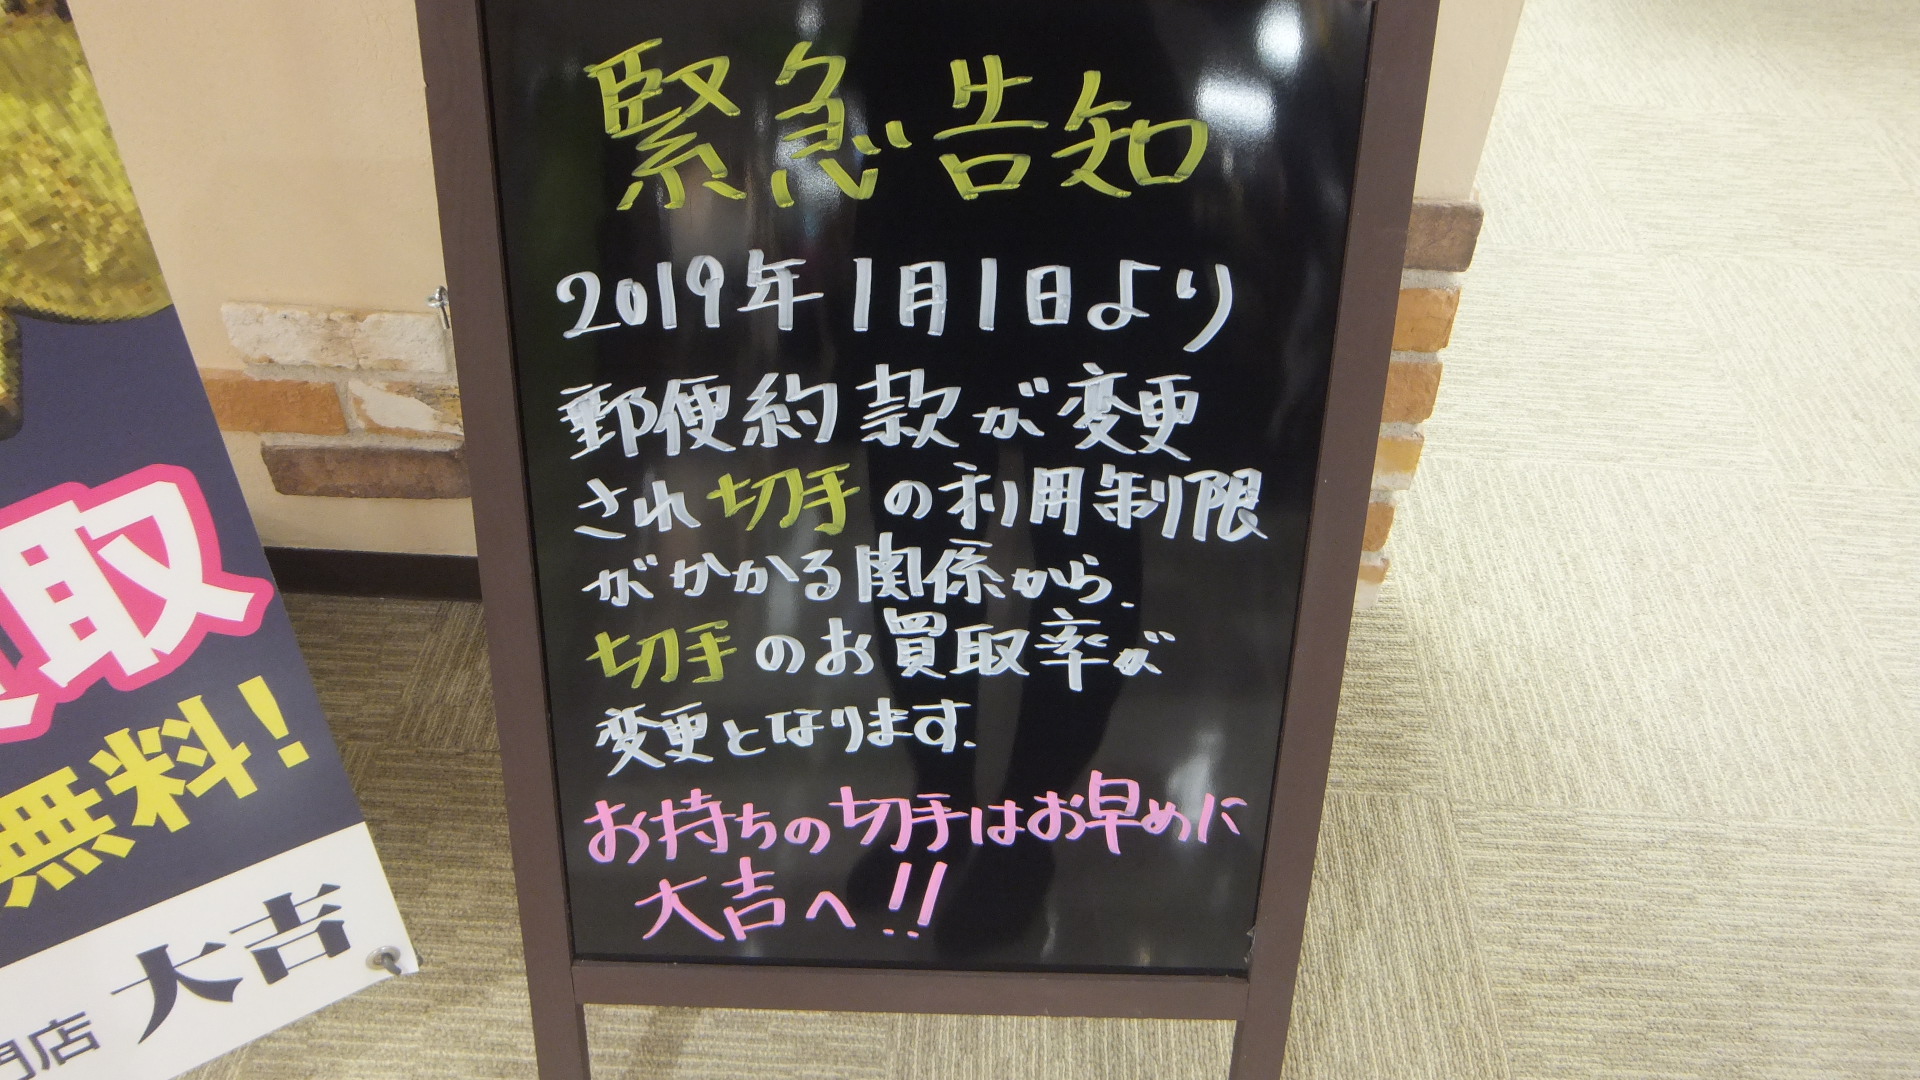 緊急告知
2019年1月1日より
郵便約款が変更
され切手の利用制限
がかかる関係から、
切手のお買取率が
変更となります。
お持ちの切手はお早めに
大吉へ!!
取
無料!
門店 大吉